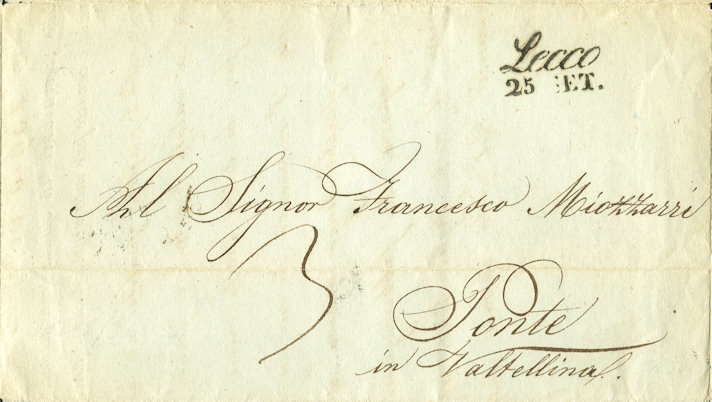 Lecco
25 SET.
Al Signor Francesco Miozzarri
3
Ponte
in Valtellina.